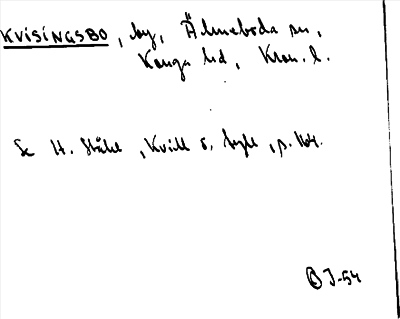 KVISINGSBO, by, Älmeboda sn,
Konga hd, Kron. l.
Se H. Ståhl, Kvill o. hyll, p. 164.
J-54